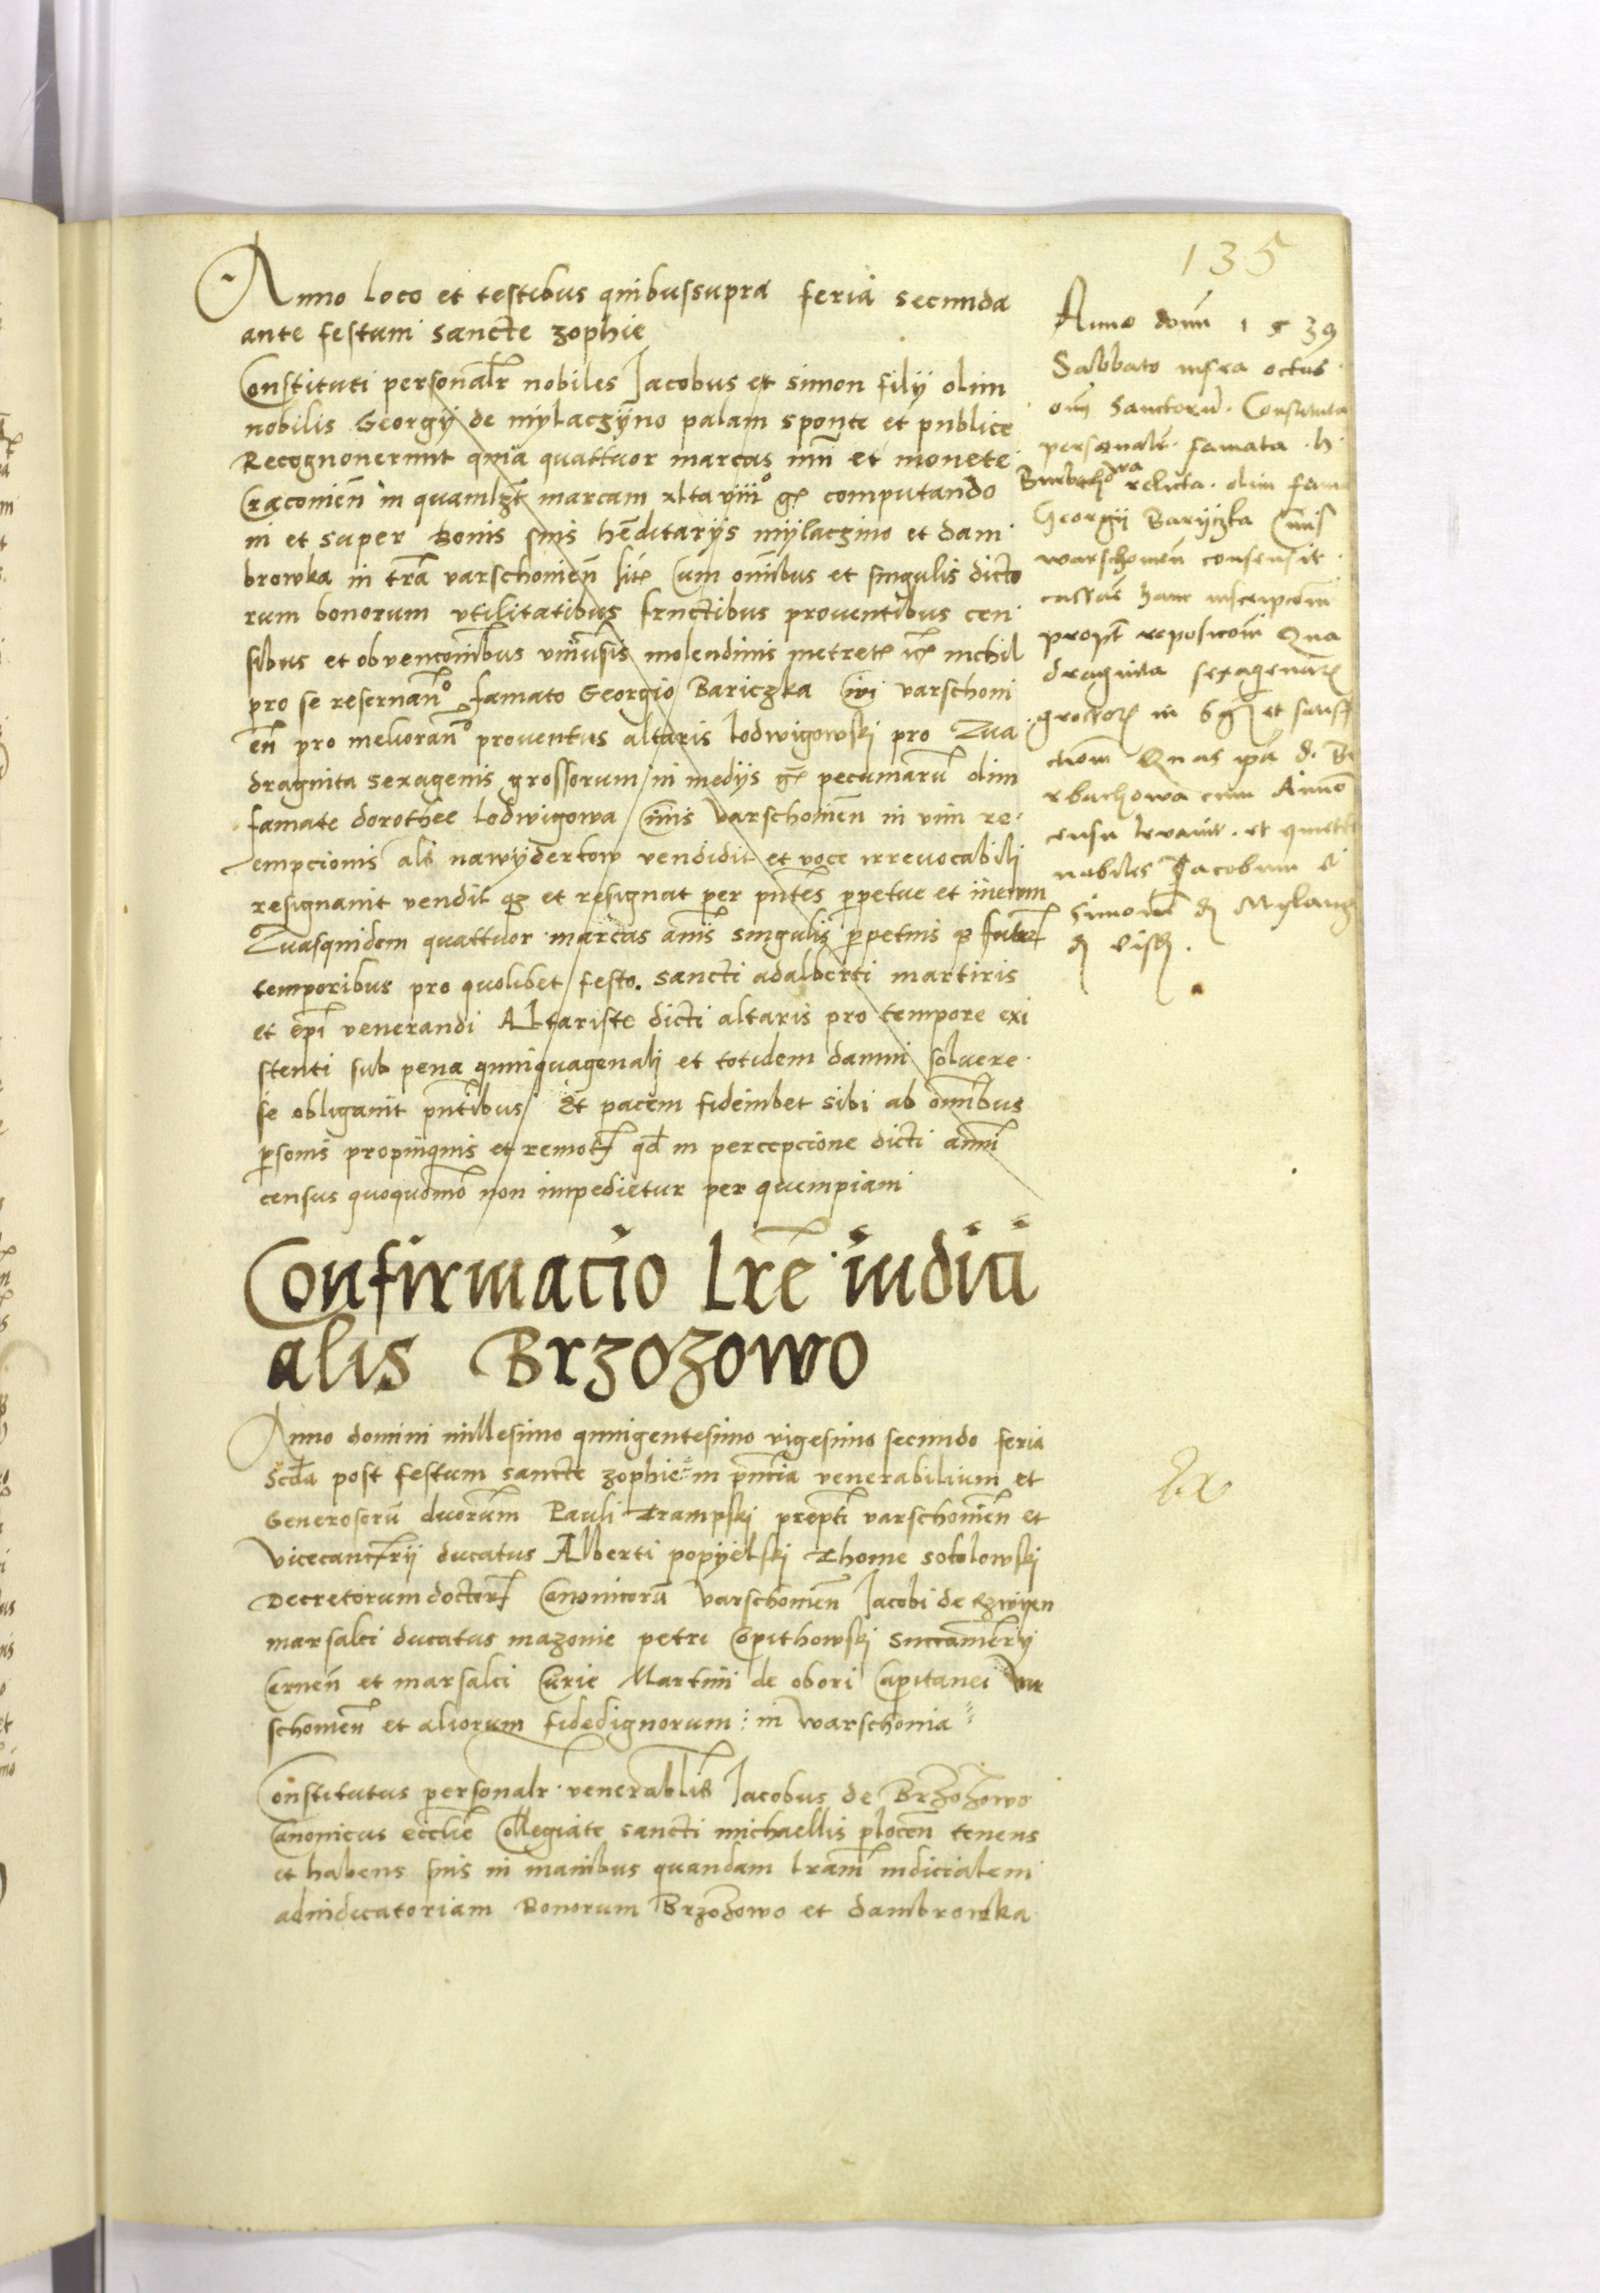 135
Anno loco et testibus quibussupra feria secunda
ante festum sancte zophie
Constituti personalr nobiles Jacobus et simon filij olim
nobilis Georgij de mylaczyno palam sponte et publice
Recognouerunt quia quattuor marcas et monete
Cracouien in quamlzt marcam xltaviii gr computando
in et super Bonis suis heditarijs mijlaczino et dam
browka in tra varschouien cum omibus et singulis dicto
rum bonorum vtilitatibus fructibus prouentibus cen
sibus et obuencombus vniusis molendinis metret nichil
pro se reseruando famato Georgio Bariczka Ciui varschoui
en pro meliorando prouentus altaris lodwigowski pro Qua
draginta sexagenis grossorum in medijs gr pecuniaru olim
famate dorothee lodwigowa Ciuis varschouien in vim re
empcionis als nawyderkow vendidit et voce irreuocabili
resignauit vendit qz et resignat per pntes perpetue et ineuum
Quasquidem quattuor marcas annis singulis perpetuis futur
temporibus pro quolibet festo sancti adalberti martiris
et epi venerandi Altariste dicti altaris pro tempore exi
stenti sub pena quinquagenali et totidem damni soluere
se obligauit pntibus Et pacem fideiubet sibi ab omibus
personis propinquis et remot qd in percepcione dicti anni
census quoquomo non impedietur per quempiam
Anno domi 1539
Sabbato infra octas
omi Sanctoru Constituta
personalr famata h
Burbachowa relicta olim fama
Georgij Barijczka Ciuis
warschouien consensit
cassas hanc inscripcom
propt reposicom Qua
draginta sexagenar
grossor in et satisf
ctiom Quas ipa d. Bu
rbachowa cum Annuo
censu leuauit et quetat
nobiles Jacobum et
Simone d Mylacz
Confirmacio Lre iudici
alis Brzozowo
Anno domini millesimo quingentesimo vigesimo secundo feria
Scda post festum sancte zophie in pntia venerabilium et
Generosoru duorum Pauli Trampski prepti varschouien et
vicecancrii ducatus Alberti popyelski Thome sokolowski
Decretorum doctor Canonicoru varschouien Jacobi de Rzwyen
marsalci ducatus mazouie petri Copithowski succamerij
Cernen et marsalci Curie Martini de obori Capitanei var
schouien et aliorum fidedignorum in warschouia
Constitutus personalr venerablis Jacobus de Brzozowo
Canonicus ecclie Collegiate sancti michaellis plocen tenens
et habens suis in manibus quandam lram iudicialem
adiudicatoriam Bonorum Brzozowo et dambrowka